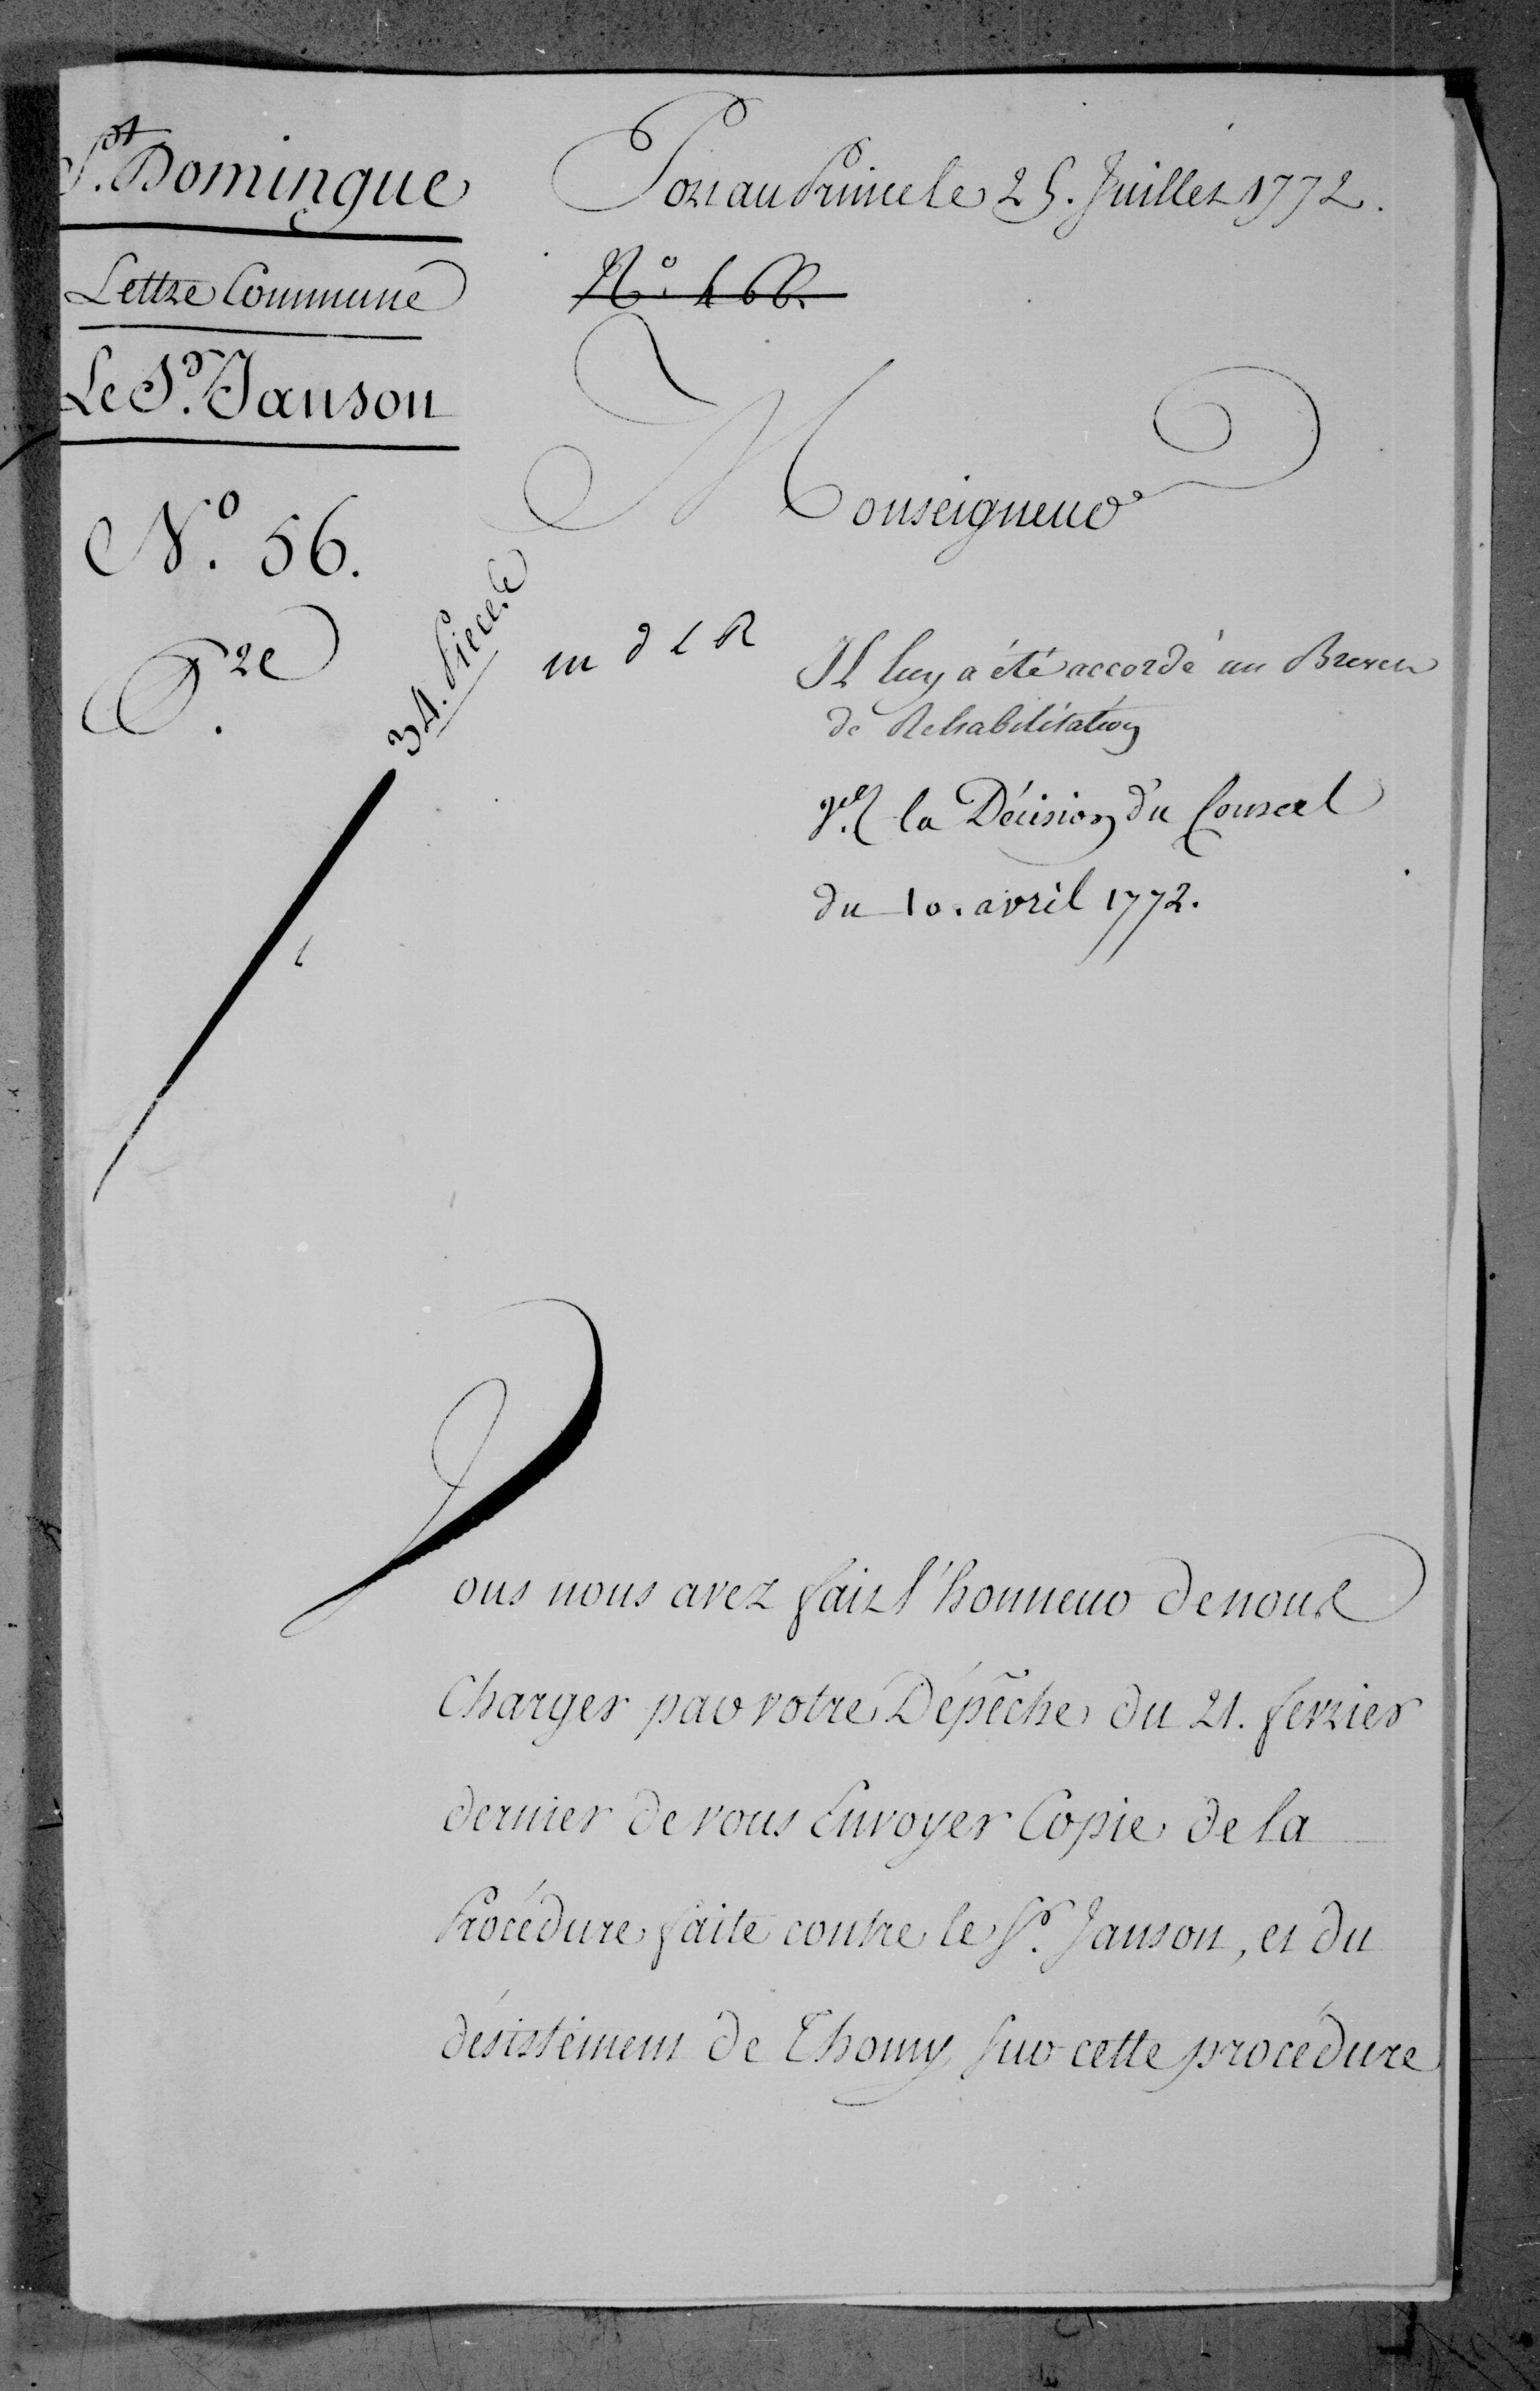 S.t Domingue
Lettre Commune
Le S.r Janson
N.o 56.
P.re
34. Pieces
Port au Prince le 25. Juillet 1772.
Monseigneur
m d l R
Il luy a été accordé un Brevet
de Rehabilitation
la Décision du Conseil
du 10. avril 1772.
Vous nous avez fait l'honneur de nous
Charger par votre Dépêche du 21. fevrier
dernier de vous Envoyer Copie de la
Procédure faite contre le S.r Janson, et du
désistement de Thomy sur cette procédure